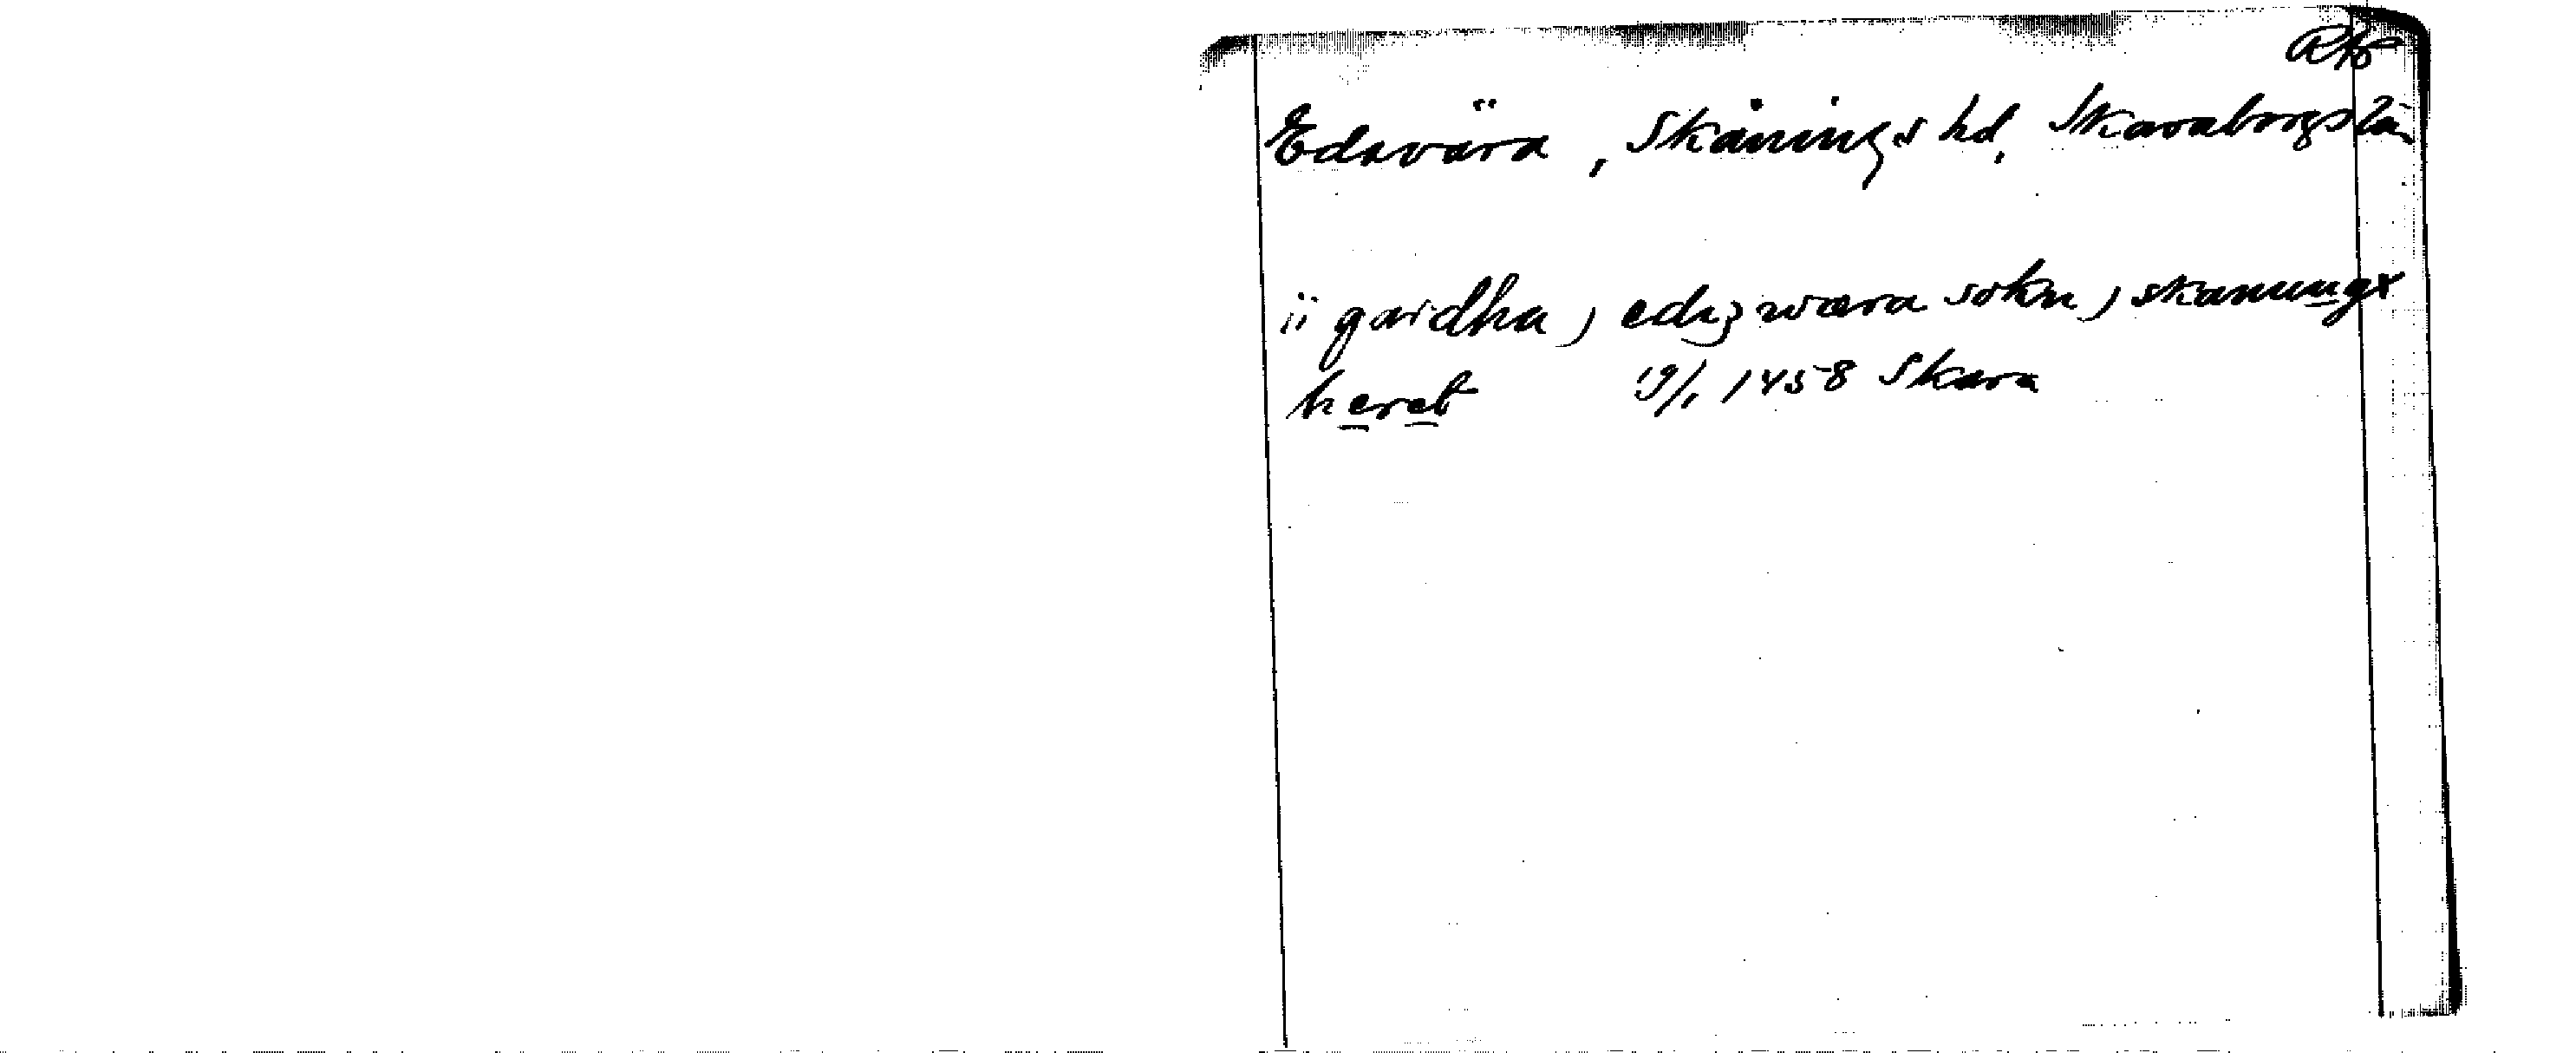 RAp
Edsvära, Skånings hd, Skaraborgs län
ii gardha j edzwæra sokn j skanungx
heret 19/1 1458 Skara